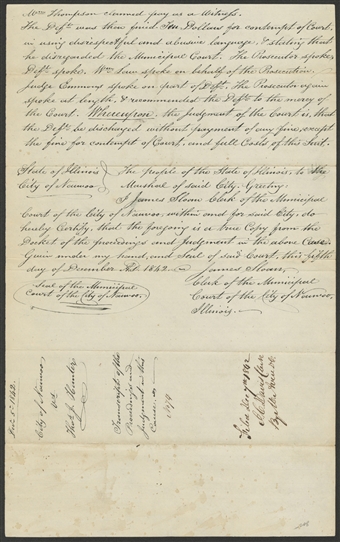 Wm Thompson claimed pay as a Witness.
The Defts. was then fined Ten Dollars for contempt of Court,
in using disrespectful and abusive language, & stating that
he disregarded the Municipal Court. The Prosecutor spoke,
Deft. spoke. Wm Law spoke on behalf of the Prosecution.
Judge Emmons spoke on part of Deft. The Prosecutor again
spoke at length, & recommended the Deft. to the mercy of
the Court. Whereupon, the judgment of the Court is, that
the Deft. be discharged without payment of any fine, except
the fine for contempt of Court, and full Costs of this Suit.
State of Illinois } The people of the State of Illinois, to the
City of Nauvoo } Marshal of said City, Greeting:
I James Sloan Clerk of the Municipal
Court of the City of Nauvoo, within and for said City, do
hereby Certify, that the foregoing is a true Copy from the
Docket of the proceedings and Judgment in the above Case.
Given under my hand, and Seal of said Court, this fifth
day of December A.D. 1842.
James Sloan,
Clerk of the Municipal
Court of the City of Nauvoo,
Illinois.
Seal of the Municipal
Court of the City of Nauvoo.
1842.
City of Nauvoo
vs
Thos. J. Hunter
Transcript of the
Proceedings and
Judgment in this
Filed Decr 7th 1842